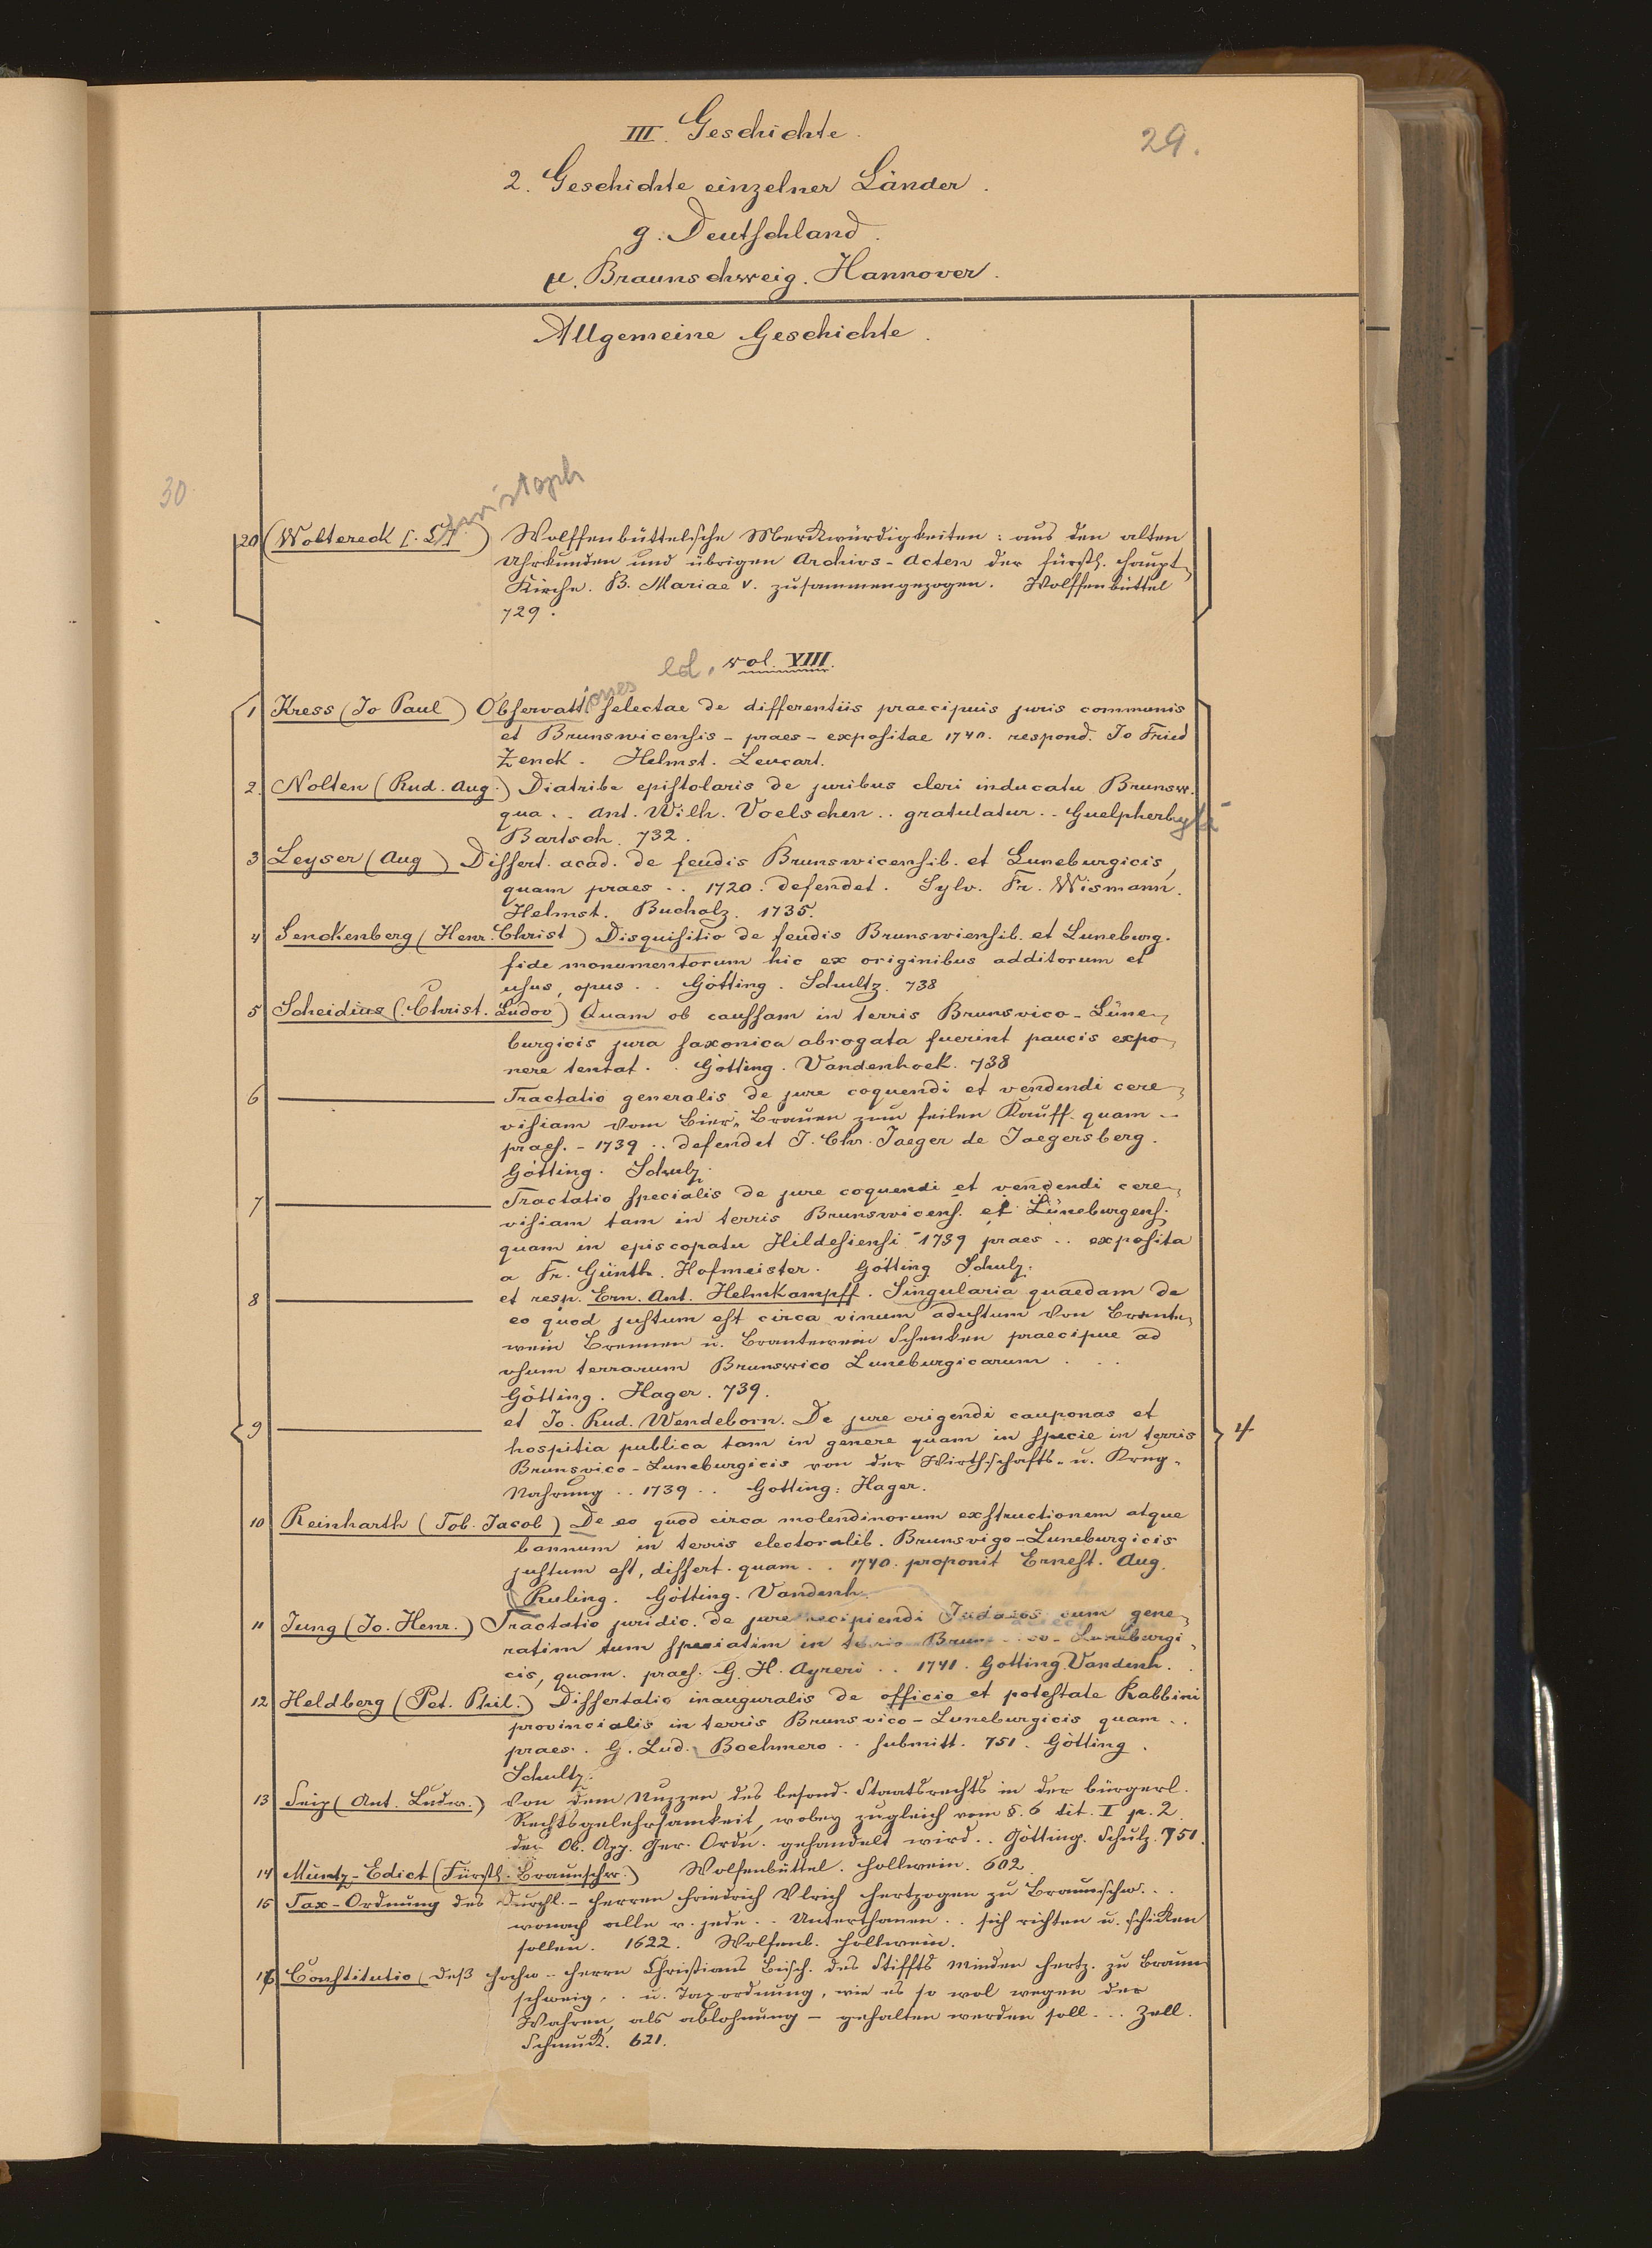 III. Geschichte.
29.
2. Geschichte einzelner Länder.
g. Deutschland.
μ. Braunschweig. Hannover.
Allgemeine Geschichte.
30
Christoph
20 (Woltereck [. Ch.) Wolffenbüttelsche Merckwürdigkeiten: aus den alten
Uhrkunden und übrigen Archivs-Acten der fürstl. Haupt-
Kirche. B. Mariae V. zusammengezogen. Wolffenbüttel
729.
ed. vol. VIII.
1 Kress (Jo Paul) Observationes selectae de differentiis praecipuis juris communis
et Brunswicensis - praes - expositae 1740. respond. Jo Fried
Zenck. Helmst. Leucart.
2. Nolten (Rud. Aug.) Diatribe epistolaris de juribus cleri in ducatu Brunsw.
qua .. Ant. Wilh. Voelschen .. gratulatur .. Guelpherbyti
Bartsch. 732.
3 Leyser (Aug) Dissert. acad. de feudis Brunswicensib. et Luneburgicis,
quam praes .. 1720. defendet. Sylv. Fr. Wismann.
Helmst. Bucholz. 1735.
4 Senckenberg (Henr. Christ) Disquisitio de feudis Brunswiensib. et Luneburg.
fide monumentorum hic ex originibus additorum et
usus, opus .. Götting. Schultz. 738
5 Scheidius (Christ. Ludov) Quam ob caussam in terris Brunsvico-Lüne-
burgicis jura saxonica abrogata fuerint paucis expo-
nere tentat .. Götting. Vandenhoek. 738
6 ——— Tractatio generalis de jure coquendi et vendendi cere-
visiam vom Bier-Brauen zum feilen Kauff. quam ..
praes. - 1739 .. defendet J. Chr. Jaeger de Jaegersberg.
Götting. Schulz.
7 ——— Tractatio specialis de jure coquendi et vendendi cere-
visiam tam in terris Brunswicens. et Lüneburgens.
quam in episcopatu Hildesiensi 1739 praes .. exposita
a Fr. Günth. Hofmeister. Götting Schulz.
8 ——— et resp. Ern. Ant. Helmkampff. Singularia quaedam de
eo quod justum est circa vinum adustum von Brante-
wein Brennen u. Brantewein Schenken praecipue ad
usum terrarum Brunswico Luneburgicarum ...
Götting. Hager. 739.
9 ——— et Jo. Rud. Wendeborn. De jure erigendi cauponas et
hospitia publica tam in genere quam in specie in terris
Brunsvico-Luneburgicis von der Wirthschafts- u. Krug-
Nahrung .. 1739 .. Gotting: Hager.
4
10 Reinharth (Tob. Jacob) De eo quod circa molendinorum exstructionem atque
bannum in terris electoralib. Brunsvigo-Luneburgicis
justum est, dissert. quam .. 1740. proponit Ernest. Aug.
Ruling. Götting. Vandenh.
11 Jung (Jo. Henr.) Tractatio juridic. de jure recipiendi Judaeos cum gene-
ratim tum speciatim in terris Brunsvico-Luneburgi-
cis, quam. praes. G. H. Ayreri .. 1741. Gotting. Vandenh.
12 Heldberg (Pet. Phil.) Dissertatio inauguralis de officio et potestate Rabbini
provincialis in terris Brunsvico-Luneburgicis quam ..
praes. G. Lud. Boehmero .. submitt. 751. Götting.
Schultz.
13 Seip (Ant. Ludw.) Von dem Nuzzen des besond. Staatsrechts in der bürgerl.
Rechtsgelehrsamkeit, wobey zugleich vom §. 6 tit. I p. 2
der Ob. App. Ger. Ordn. gehandelt wird .. Götting. Schulz. 751.
14 Müntz-Edict (Fürstl. Braunschw.) Wolfenbüttel. Hollwein. 602
15 Tax-Ordnung des Durchl. - Herren Friedrich Ulrich Hertzogen zu Braunschw...
wonach alle u. jede .. Unterthanen .. sich richten u. schicken
sollen. 1622. Wolfenb. Hollwein.
16 Constitutio (deß Hochw.. Herrn Christians Bisch. des Stiffts Minden Hertz. zu Braun
schweig .. u. Taxordnung, wie es so wol wegen der
Wahren, als ablohnung - gehalten werden soll ... Zell.
Schmuck. 621.